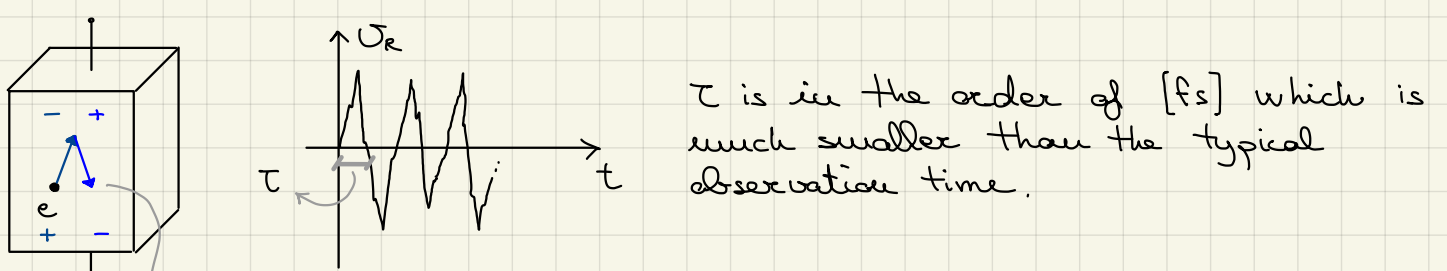 U_R
- +
e
+ -
τ
t
τ is in the order of [fs] which is
much smaller than the typical
observation time.